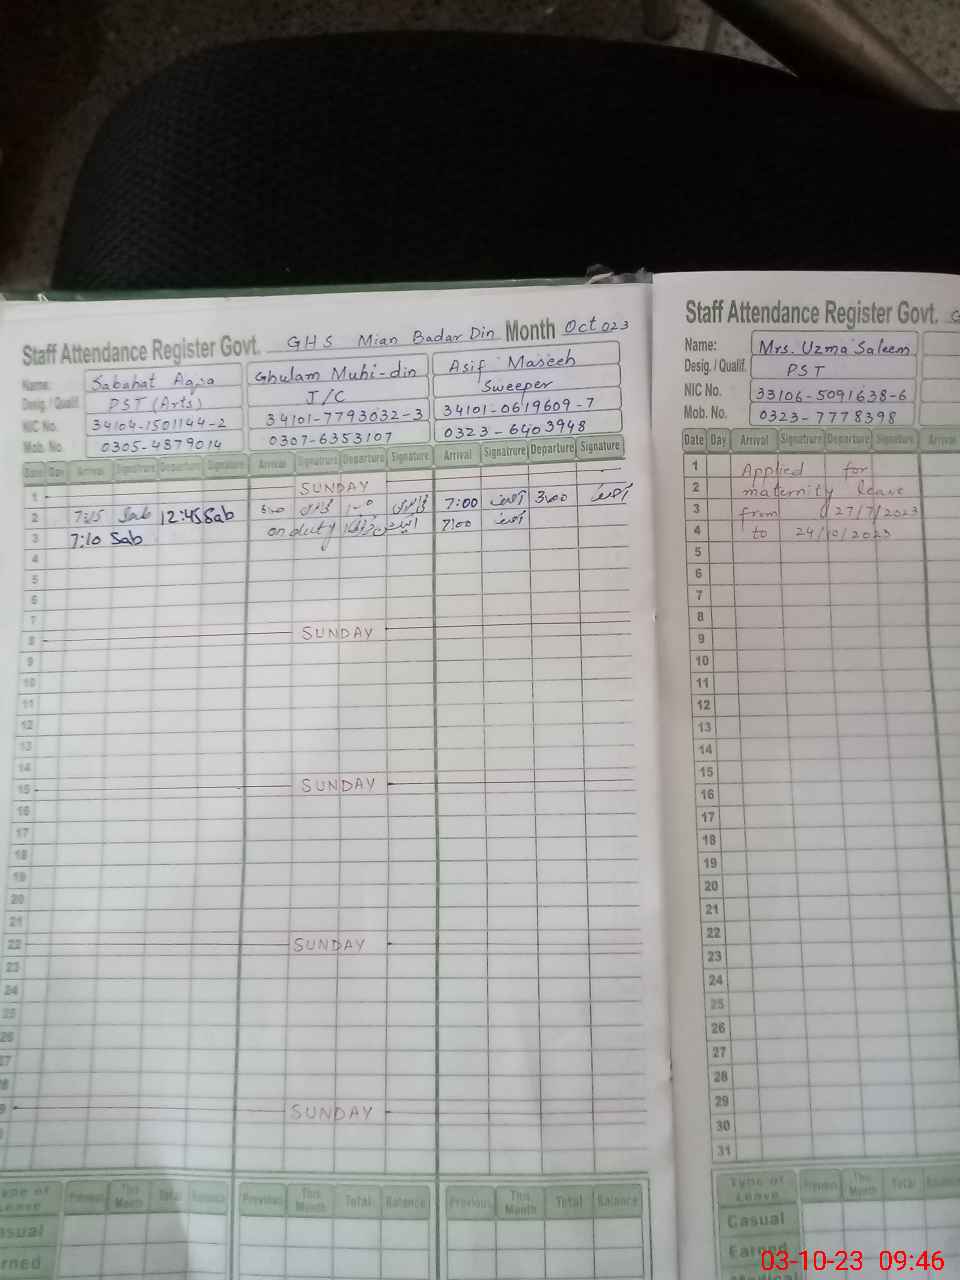 Staff Attendance Register Govt. GHS Mian Badar Din Month Oct 023
Name: Sabahat Ghulam Muhi-din Asif Maseeh
Desig. / Qualif. PST (Arts) J/C Sweeper
NIC No. 34104-1501144-2 34101-7793032-3 34101-0619609-7
Mob. No. 0305-4879014 0307-6353107 0323-6403948
Date Day Arrival Signatrure Departure Signature Arrival Signatrure Departure Signature Arrival Signatrure Departure Signature
1 SUNDAY
2 7:15 Sab 12:45 Sab 7:00 3:00
3 7:10 Sab on duty 7:00
4
5
6
7
8 SUNDAY
9
10
11
12
13
14
15 SUNDAY
16
17
18
19
20
21
22 SUNDAY
23
24
25
26
27
28
9 SUNDAY
Type of Leave Previous This Month Total Balance Previous This Month Total Balance Previous This Month Total Balance
asual
rned
Staff Attendance Register Govt. G
Name: Mrs. Uzma Saleem
Desig. / Qualif. PST
NIC No. 33106-5091638-6
Mob. No. 0323-7778398
Date Day Arrival Signatrure Departure Signature Arrival
1 Applied for
2 maternity leave
3 from 27/7/2023
4 to 24/10/2023
5
6
7
8
9
10
11
12
13
14
15
16
17
18
19
20
21
22
23
24
25
26
27
28
29
30
31
Type of Leave Previous This Month Total Balance
Casual
Earned
03-10-23 09:46